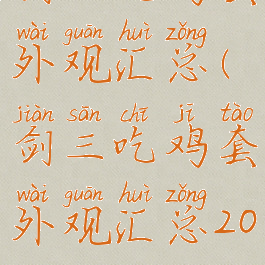 wài guān huì zǒng
外观汇总(
jiàn sān chī jī tào
剑三吃鸡套
wài guān huì zǒng
外观汇总20